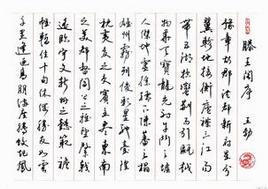 滕王閣序 王勃
豫章故郡洪都新府星分
翼軫地接衡廬襟三江而
帶五湖控蠻荊而引甌越
物華天寶龍光射牛斗之墟
人傑地靈徐孺下陳蕃之榻
雄州霧列俊彩星馳臺隍
枕夷夏之交賓主盡東南
之美都督閻公之雅望棨戟
遙臨宇文新州之懿範襜
帷暫駐十旬休假勝友如雲
千里逢迎高朋滿座騰蛟起鳳